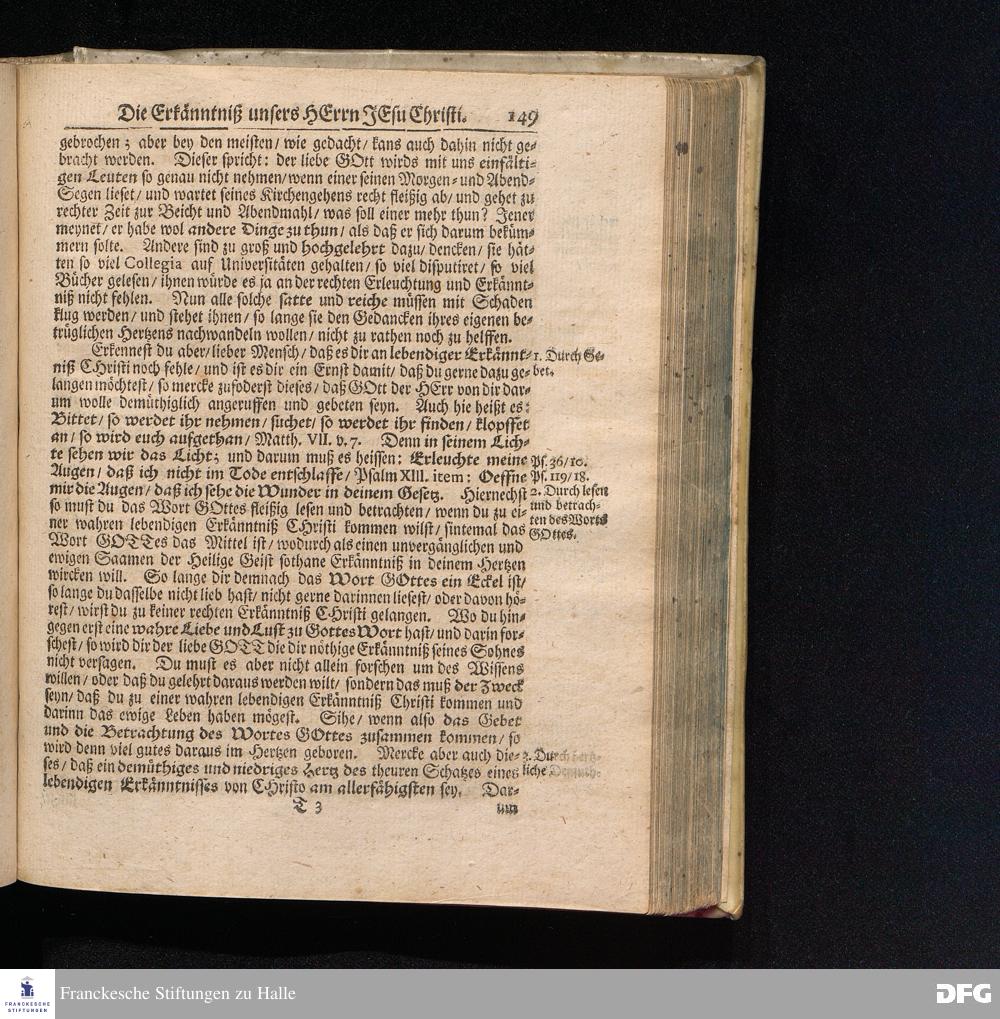 Die Erkänntniß unsers HErrn JEsu Christi. 149
gebrochen; aber bey den meisten/ wie gedacht/ kans auch dahin nicht ge-
bracht werden. Dieser spricht: der liebe GOtt wirds mit uns einfälti-
gen Leuten so genau nicht nehmen/ wenn einer seinen Morgen- und Abend-
Segen lieset/ und wartet seines Kirchengehens recht fleißig ab/ und gehet zu
rechter Zeit zur Beicht und Abendmahl/ was soll einer mehr thun? Jener
meynet/ er habe wol andere Dinge zu thun/ als daß er sich darum beküm-
mern solte. Andere sind zu groß und hochgelehrt dazu/ dencken/ sie hät-
ten so viel Collegia auf Universitäten gehalten/ so viel disputiret/ so viel
Bücher gelesen/ ihnen würde es ja an der rechten Erleuchtung und Erkännt-
niß nicht fehlen. Nun alle solche satte und reiche müssen mit Schaden
klug werden/ und stehet ihnen/ so lange sie den Gedancken ihres eigenen be-
trüglichen Hertzens nachwandeln wollen/ nicht zu rathen noch zu helffen.
Erkennest du aber/ lieber Mensch/ daß es dir an lebendiger Erkännt-
niß CHristi noch fehle/ und ist es dir ein Ernst damit/ daß du gerne dazu ge-
langen möchtest/ so mercke zuföderst dieses/ daß GOtt der HErr von dir dar-
um wolle demüthiglich angeruffen und gebeten seyn. Auch hie heißt es:
Bittet/ so werdet ihr nehmen/ suchet/ so werdet ihr finden/ klopffet
an/ so wird euch aufgethan/ Matth. VII. v. 7. Denn in seinem Lich-
te sehen wir das Licht; und darum muß es heissen: Erleuchte meine
Augen/ daß ich nicht im Tode entschlaffe/ Psalm XIII. item: Oeffne
mir die Augen/ daß ich sehe die Wunder in deinem Gesetz. Hiernechst
so must du das Wort GOttes fleißig lesen und betrachten/ wenn du zu ei-
ner wahren lebendigen Erkänntniß CHristi kommen wilst/ sintemal das
Wort GOTTes das Mittel ist/ wodurch als einen unvergänglichen und
ewigen Saamen der Heilige Geist sothane Erkänntniß in deinem Hertzen
wircken will. So lange dir demnach das Wort GOttes ein Eckel ist/
so lange du dasselbe nicht lieb hast/ nicht gerne darinnen liesest/ oder davon hö-
rest/ wirst du zu keiner rechten Erkänntniß CHristi gelangen. Wo du hin-
gegen erst eine wahre Liebe und Lust zu Gottes Wort hast/ und darin for-
schest/ so wird dir der liebe GOTT die dir nöthige Erkänntniß seines Sohnes
nicht versagen. Du must es aber nicht allein forschen um des Wissens
willen/ oder daß du gelehrt daraus werden wilt/ sondern das muß der Zweck
seyn/ daß du zu einer wahren lebendigen Erkänntniß Christi kommen und
darinn das ewige Leben haben mögest. Sihe/ wenn also das Gebet
und die Betrachtung des Wortes GOttes zusammen kommen/ so
wird denn viel gutes daraus im Hertzen geboren. Mercke aber auch die-
ses/ daß ein demüthiges und niedriges Hertz des theuren Schatzes eines
lebendigen Erkänntnisses von CHristo am allerfähigsten sey. Dar-
T 3 um
1. Durch Ge-
bet.
Ps. 36/10.
Ps. 119/18.
2. Durch lesen
und betrach-
ten des Worts
GOttes.
3. Durch hertz-
liche Demuth.
Franckesche Stiftungen zu Halle
FRANCKESCHE
STIFTUNGEN
DFG